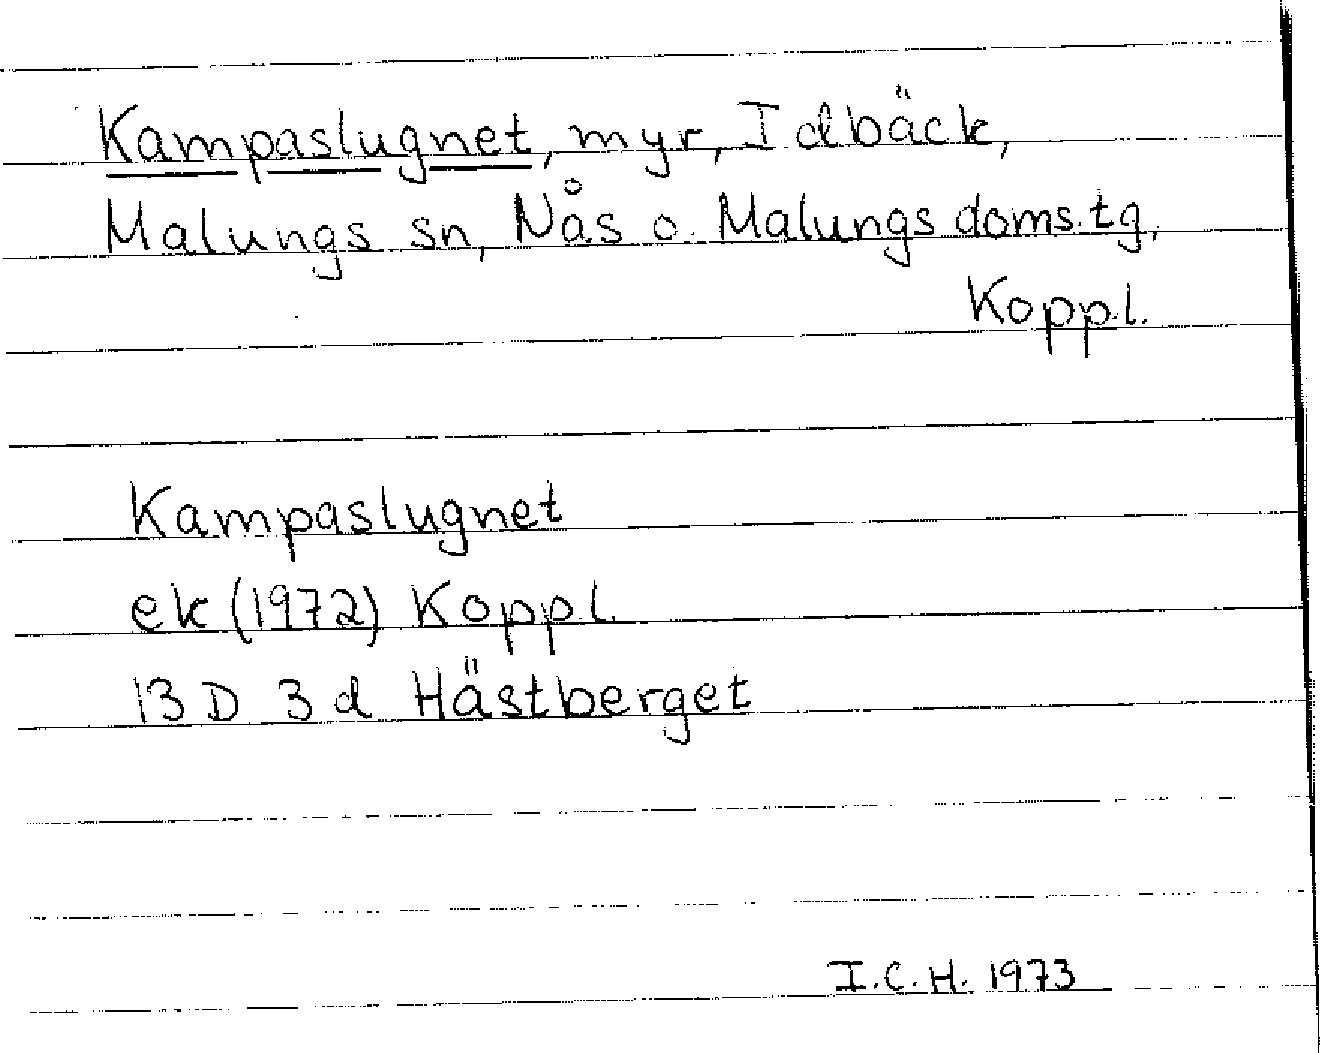 Kampaslugnet, myr, Idbäck,
Malungs sn, Nås o. Malungs doms.tg,
Koppl.
Kampaslugnet
ek (1972) Koppl.
13 D 3 d Hästberget
I.C.H. 1973